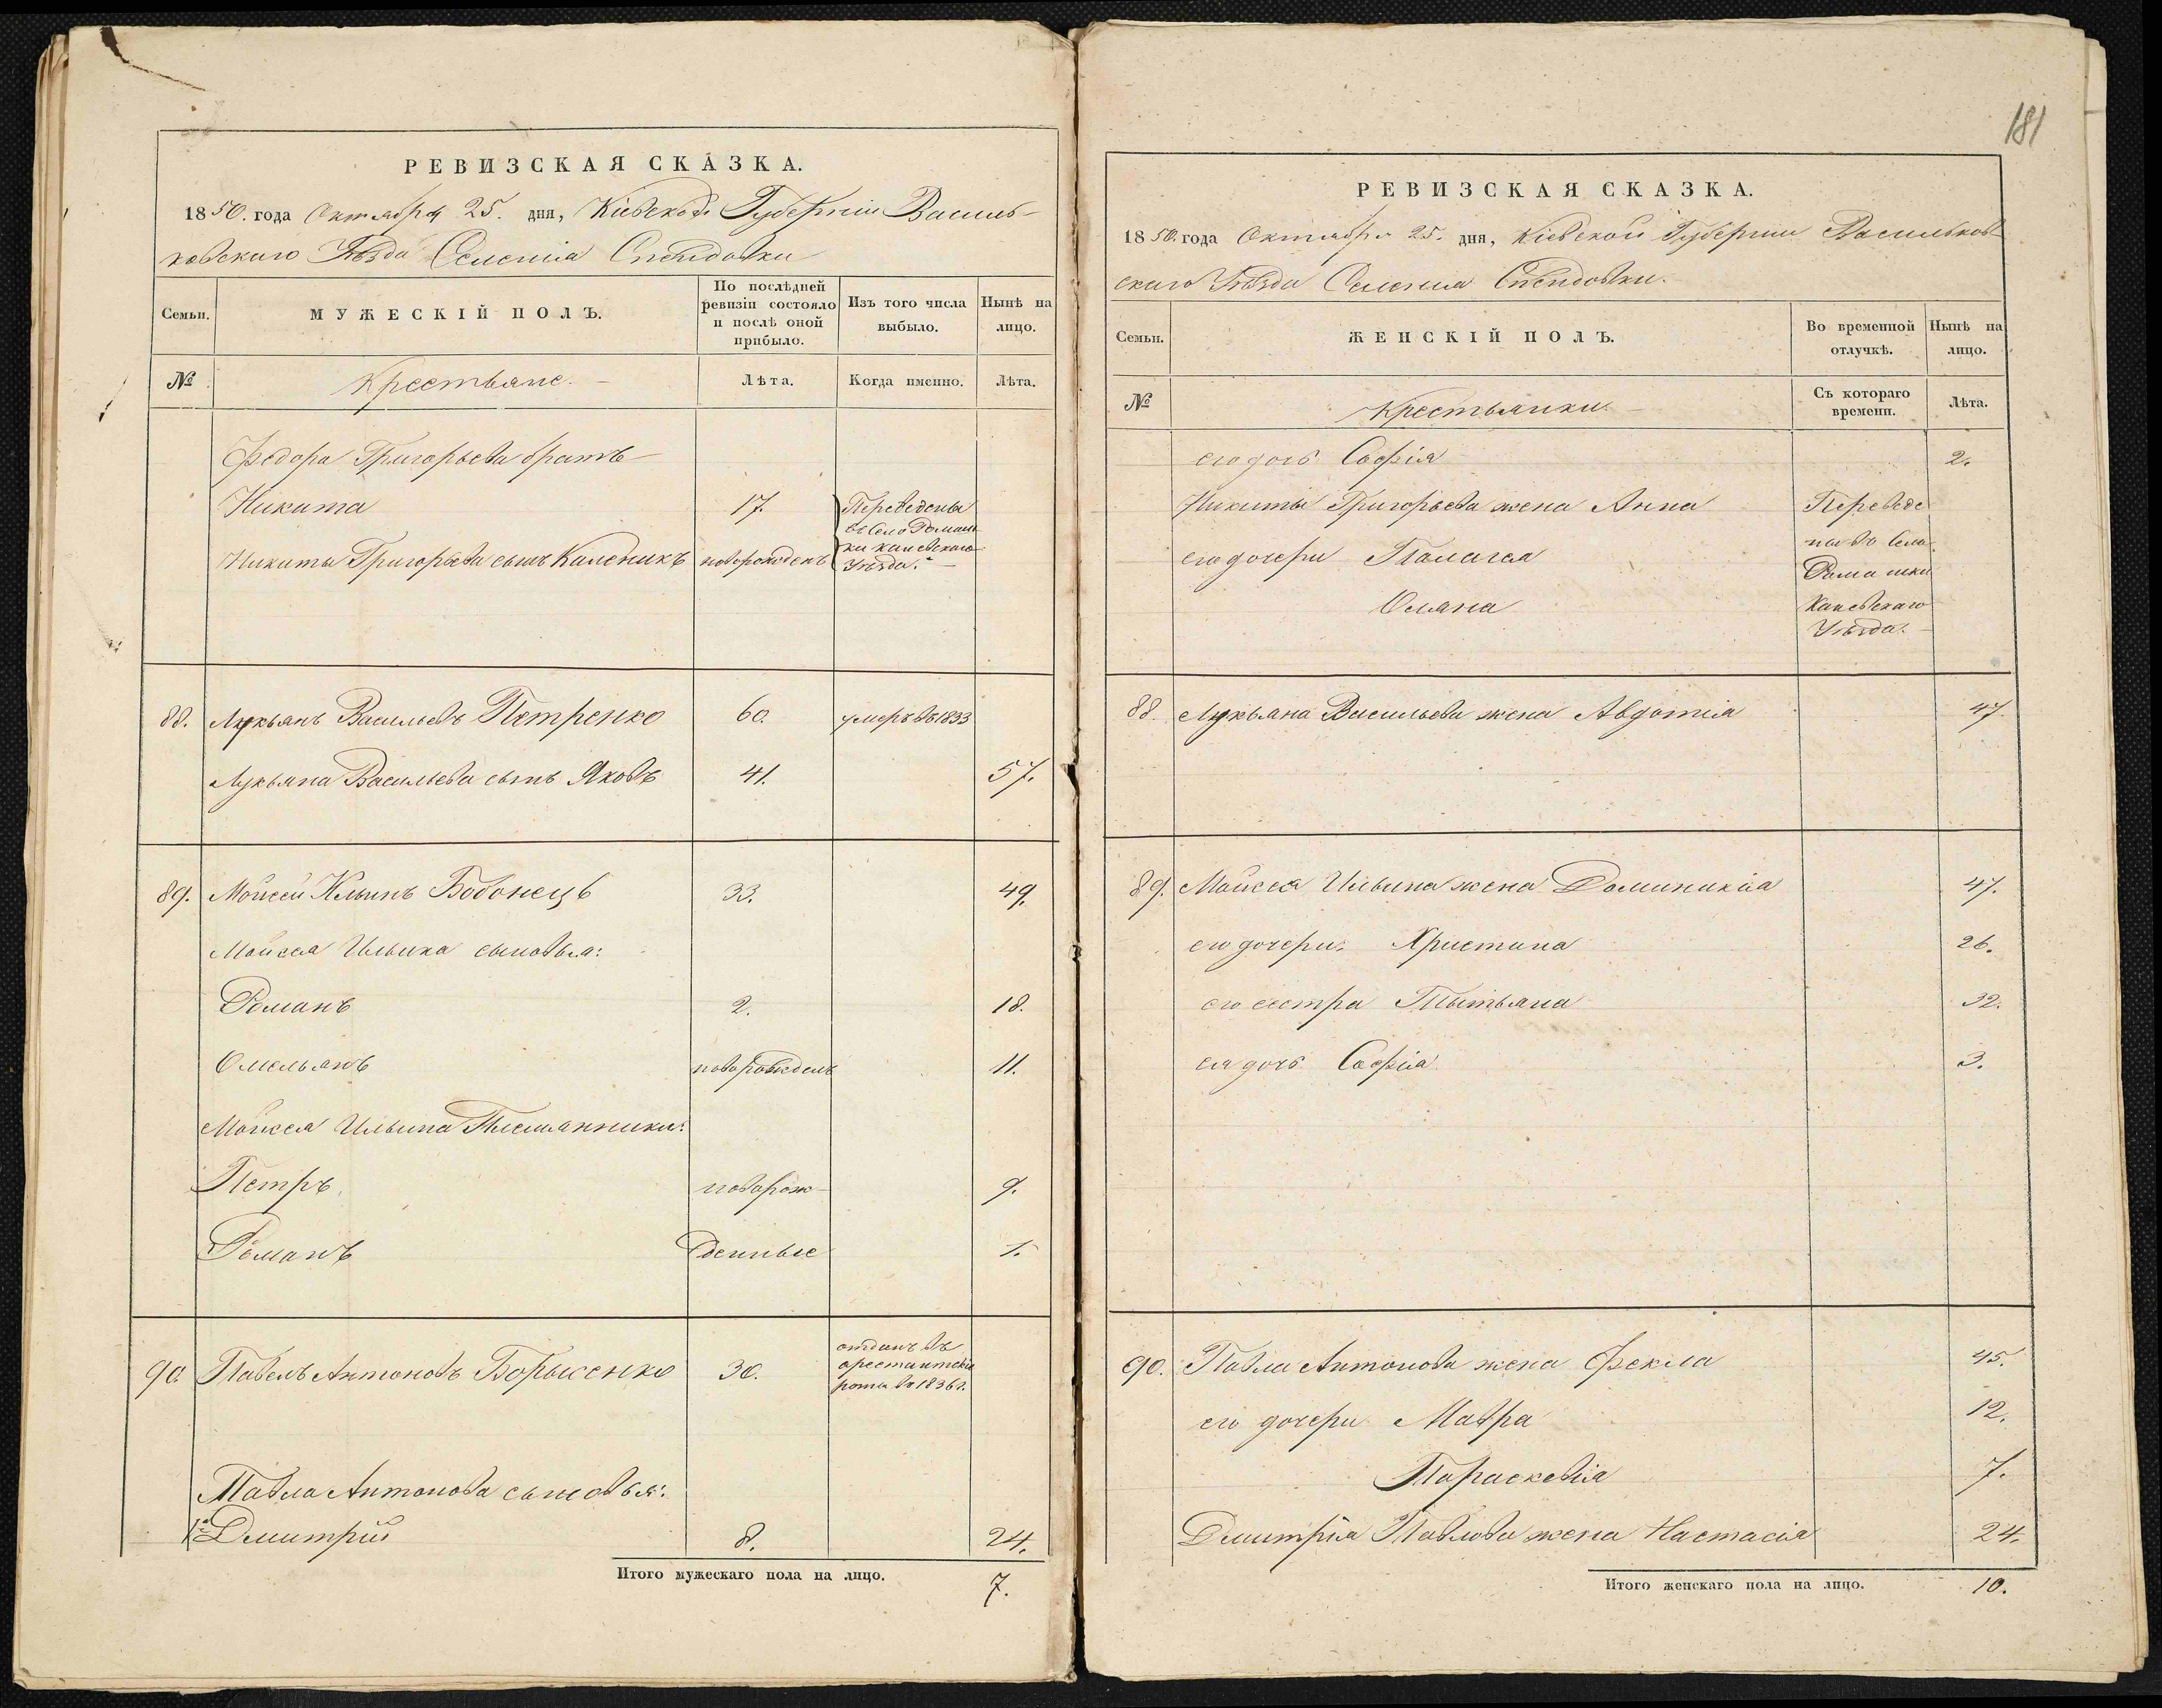 РЕВИЗСКАЯ СКАЗКА.
1850. года Октября 25. дня, Кіевской Губерніи Василь-
ковскаго Уѣзда Селенія
Семьи.
МУЖЕСКІЙ ПОЛЪ.
По послѣдней
ревизіи состояло
и послѣ оной
прибыло.
Изъ того числа
выбыло.
Нынѣ на
лицо.
№
Крестьяне.
Лѣта.
Когда именно.
Лѣта.
Федора Григорьева братъ
Никита 17. Переведены
въ село Ромаш
ки Каневскаго
Никиты Григорьева сынъ Каленикъ новорожденъ Уѣзда.
88. Лукьянъ Васильевъ Петренко 60. умеръ въ 1833
Лукьяна Васильева сынъ Яковъ 41. 57.
89. Мойсей Ильинъ Бобонецъ 33. 49.
Мойсея Ильина сыновья:
Романъ 2. 18.
Омельянъ новорожденъ 11.
Мойсея Ильина Племянники:
Петръ новорож- 9.
Романъ денные 1.
90. Павелъ Антоновъ Борысенко 30. отданъ въ
арестантскія
роты въ 1836 г.
Павла Антонова сыновья:
1й Дмитрій 8. 24.
Итого мужескаго пола на лицо. 7.
181
РЕВИЗСКАЯ СКАЗКА.
1850. года Октября 25. дня, Кіевской Губерніи Васильков-
скаго Уѣзда Селенія
Семьи.
ЖЕНСКІЙ ПОЛЪ.
Во временной
отлучкѣ.
Нынѣ на
лицо.
№
Крестьянки.
Съ котораго
времени.
Лѣта.
его дочь Софія 2.
Никиты Григорьева жена Анна Переведе
ны въ село
его дочери Палагея Ромашки
Оляна Каневскаго
Уѣзда.
88. Лукьяна Васильева жена Авдотія 47.
89. Мойсея Ильина жена Доминикія 47.
его дочери: Христина 26.
его сестра Тытьяна 32.
ея дочь Софія 3.
90. Павла Антонова жена Фекла 45.
его дочери Мавра 12.
Параскевія 7.
Дмитрія Павлова жена Настасія 24.
Итого женскаго пола на лицо. 10.